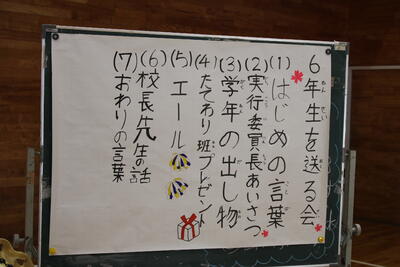 6年生を送る会
(1)はじめの言葉
(2)実行委員長あいさつ
(3)学年の出し物
(4)たてわり班プレゼント
(5)エール
(6)校長先生の話
(7)おわりの言葉